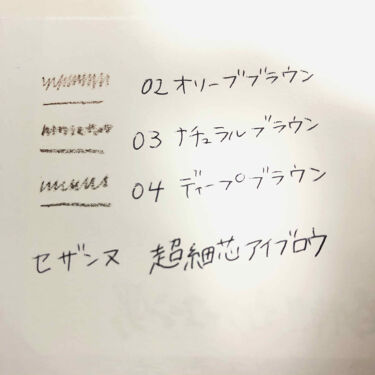 02 オリーブブラウン
03 ナチュラルブラウン
04 ディープブラウン
セザンヌ 超細芯アイブロウ